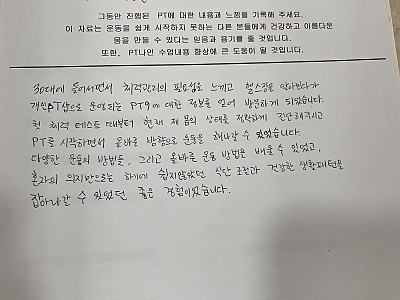 그동안 진행된 PT에 대한 내용과 느낌을 기록해 주세요.
이 자료는 운동을 쉽게 시작하지 못하는 다른 분들에게 건강하고 아름다운
몸을 만들 수 있다는 믿음과 용기를 줄 것입니다.
또한, PT나인 수업내용 향상에 큰 도움이 될 것입니다.
30대에 들어서면서 체력관리의 필요성을 느끼고 헬스장을 알아보다가
개인PT샵으로 운영되는 PT9에 대한 정보를 얻어 방문하게 되었습니다.
첫 체력 테스트 때부터 현재 제 몸의 상태를 정확하게 진단해주시고
PT를 시작하면서 올바른 방향으로 운동을 해나갈 수 있었습니다.
다양한 운동의 방법들, 그리고 올바른 운동 방법을 배울 수 있었고,
혼자의 의지만으로는 하기에 쉽지않았던 식단 조절과 건강한 생활패턴을
잡아나갈 수 있었던 좋은 경험이었습니다.